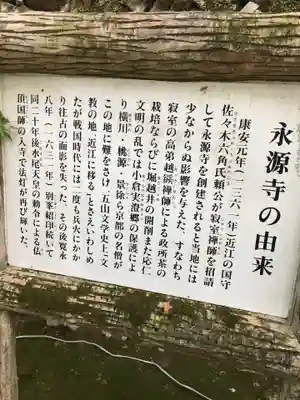 永源寺の由来
康安元年（一三六一年）近江の国守
佐々木六角氏頼公が寂室禅師を招請
して永源寺を創建されると当地には
少なからぬ影響を与えた、すなわち
寂室の高弟越渓禅師による政所茶の
栽培ならびに堀越井の開削また応仁
文明の乱では小倉実澄郷の保護によ
り横川・桃源・景徐ら京都の名僧が
この地に難をさけ「五山文学史上文
教の地、近江に移る」とさえいわしめ
たが戦国時代には二度も兵火にかか
り往古の面影を失った、その後寛永
八年（一六三一年）別峯紹印続いて
同二十年後水尾天皇の勅命による仏
頂国師の入寺で法灯が再び輝いた。